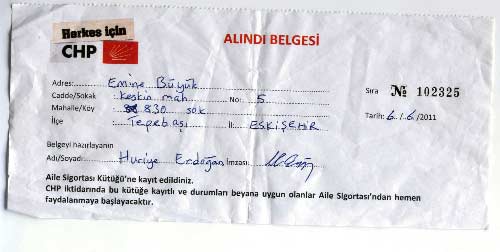 Herkes için
CHP
ALINDI BELGESİ
Adres: Emine Büyük
Sıra № 102325
Cadde/Sokak : Keskin mah. No: 5
Mahalle/Köy : 830 sok
Tarih: 6/6/2011
İlçe : Tepebaşı İl: ESKİŞEHİR
Belgeyi hazırlayanın
Adı/Soyadı : Huriye Erdoğan İmzası:
Aile Sigortası Kütüğü'ne kayıt edildiniz.
CHP iktidarında bu kütüğe kayıtlı ve durumları beyana uygun olanlar Aile Sigortası'ndan hemen
faydalanmaya başlayacaktır.